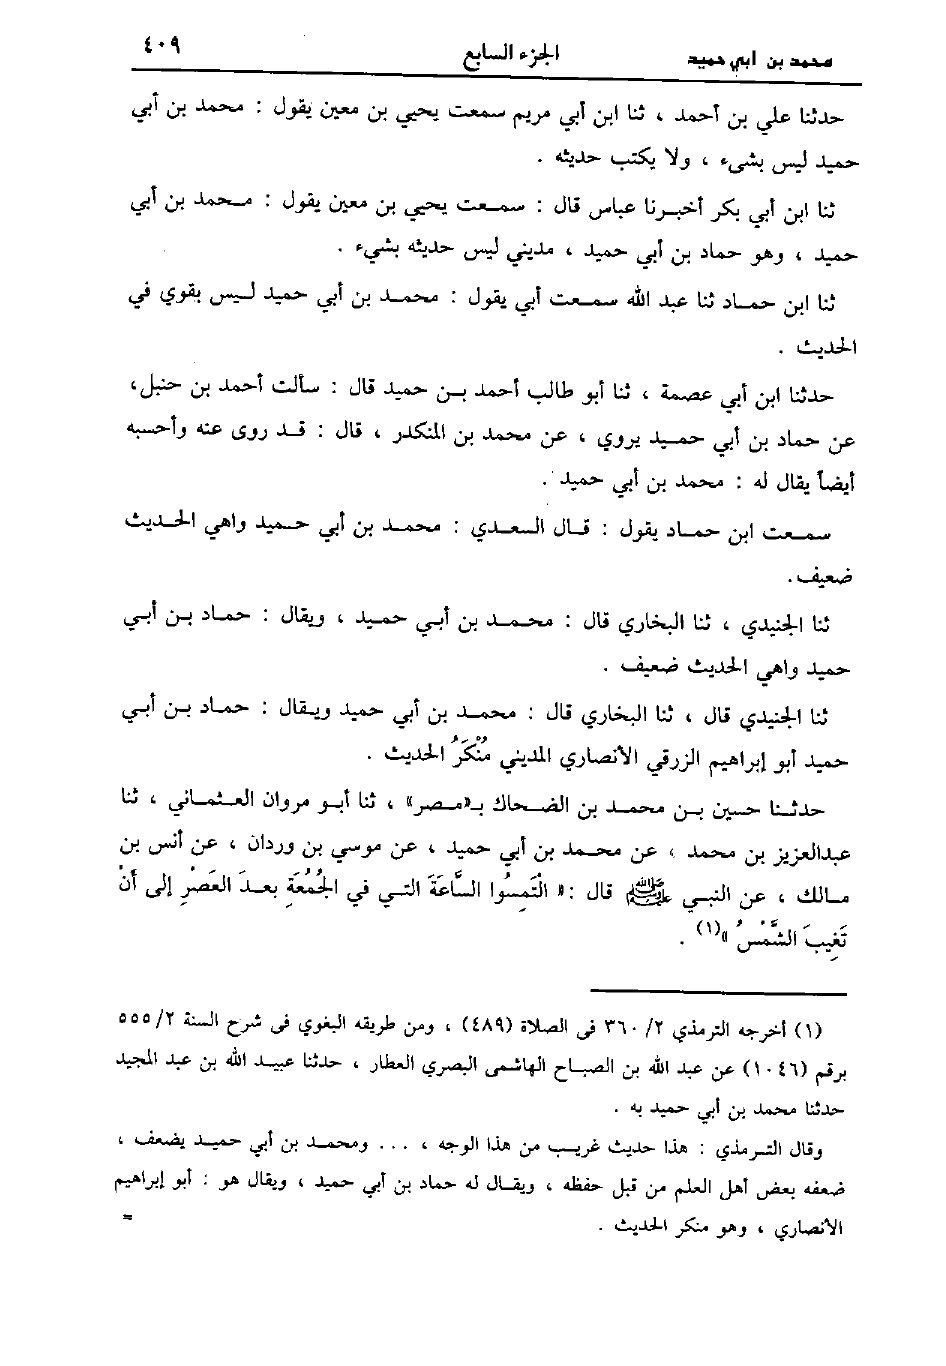 محمد بن ابي حميد الجزء السابع ٤٠٩
حدثنا علي بن أحمد ، ثنا ابن أبي مريم سمعت يحيي بن معين يقول : محمد بن أبي
حميد ليس بشيء ، ولا يكتب حديثه .
ثنا ابن أبي بكر أخبرنا عباس قال : سمعت يحيي بن معين يقول : محمد بن أبي
حميد ، وهو حماد بن أبي حميد ، مديني ليس حديثه بشيء .
ثنا ابن حماد ثنا عبد الله سمعت أبي يقول : محمد بن أبي حميد ليس بقوي في
الحديث .
حدثنا ابن أبي عصمة ، ثنا أبو طالب أحمد بن حميد قال : سألت أحمد بن حنبل،
عن حماد بن أبي حميد يروي ، عن محمد بن المنكدر ، قال : قد روى عنه وأحسبه
أيضاً يقال له : محمد بن أبي حميد .
سمعت ابن حماد يقول : قال السعدي : محمد بن أبي حميد واهي الحديث
ضعيف.
ثنا الجنيدي ، ثنا البخاري قال : محمد بن أبي حميد ، ويقال : حماد بن أبي
حميد واهي الحديث ضعيف .
ثنا الجنيدي قال ، ثنا البخاري قال : محمد بن أبي حميد ويقال : حماد بن أبي
حميد أبو إبراهيم الزرقي الأنصاري المديني مُنْكَرُ الحديث .
حدثنا حسين بن محمد بن الضحاك بـ«مصر» ، ثنا أبو مروان العثماني ، ثنا
عبدالعزيز بن محمد ، عن محمد بن أبي حميد ، عن موسي بن وردان ، عن أنس بن
مالك ، عن النبي ﷺ قال :« الْتَمِسُوا السَّاعَةَ التي في الجُمُعَةِ بعدَ العَصْرِ إلى أنْ
تَغِيبَ الشَّمْسُ »(١) .
(١) أخرجه الترمذي ٢/ ٣٦٠ فى الصلاة (٤٨٩) ، ومن طريقه البغوي فى شرح السنة ٢/ ٥٥٥
برقم (١٠٤٦) عن عبد الله بن الصباح الهاشمى البصري العطار ، حدثنا عبيد الله بن عبد المجيد
حدثنا محمد بن أبي حميد به .
وقال الترمذي : هذا حديث غريب من هذا الوجه ، ... ومحمد بن أبي حميد يضعف ،
ضعفه بعض أهل العلم من قبل حفظه ، ويقال له حماد بن أبي حميد ، ويقال هو : أبو إبراهيم
الأنصاري ، وهو منكر الحديث . =